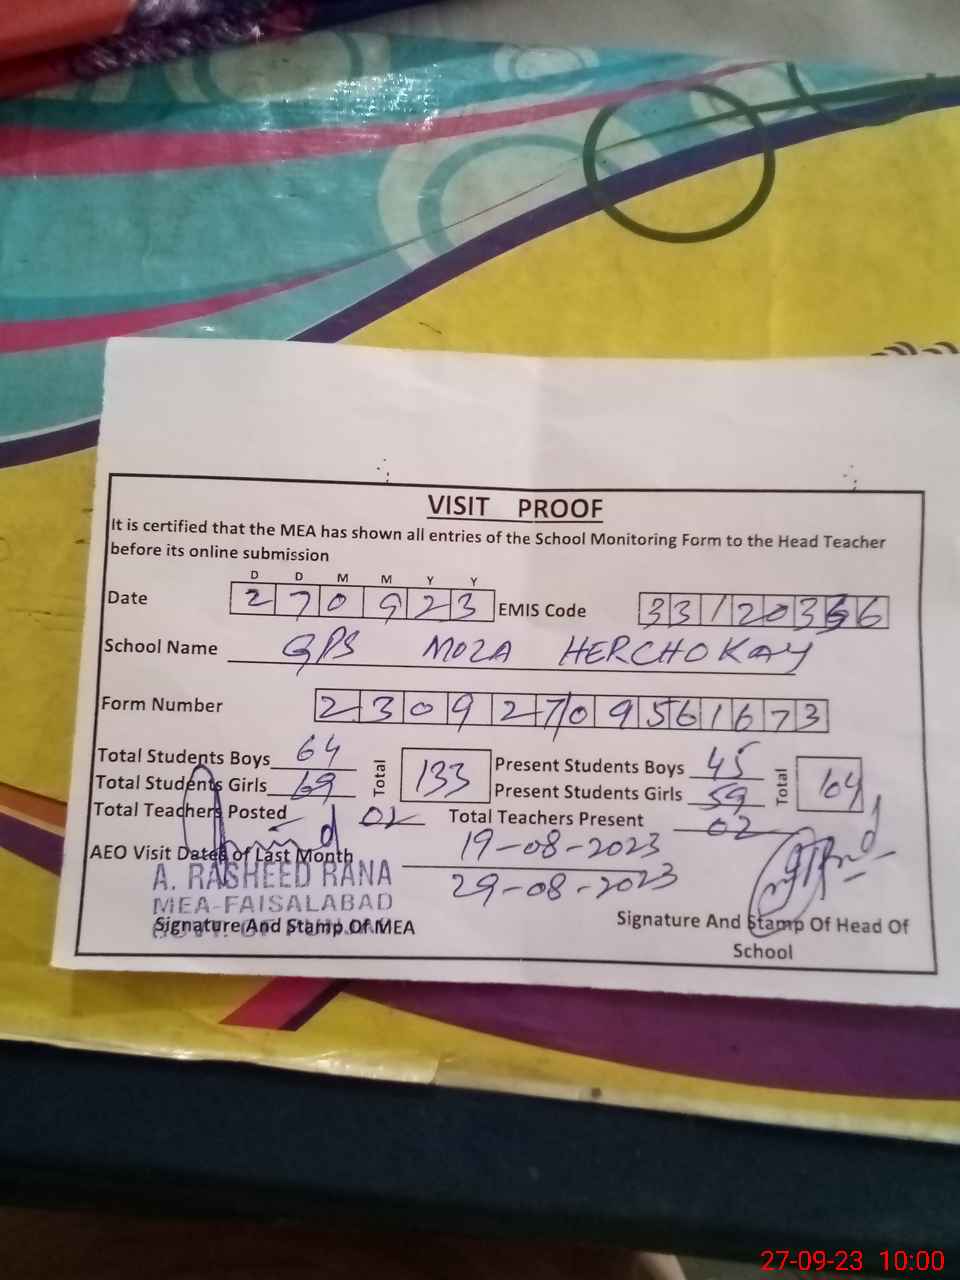 VISIT PROOF
It is certified that the MEA has shown all entries of the School Monitoring Form to the Head Teacher
before its online submission
D D M M Y Y
Date 2 7 0 9 2 3 EMIS Code 3 3 1 2 0 3 6 6
School Name GPS MOZA HERCHOKAY
Form Number 2 3 0 9 2 7 0 9 5 6 1 6 7 3
Total Students Boys 64 Total 133 Present Students Boys 45 Total 104
Total Students Girls 69 Present Students Girls 59
Total Teachers Posted 02 Total Teachers Present 02
AEO Visit Dates of Last Month 19-08-2023
29-08-2023
A. RASHEED RANA
MEA-FAISALABAD
Signature And Stamp Of MEA Signature And Stamp Of Head Of
School
27-09-23 10:00